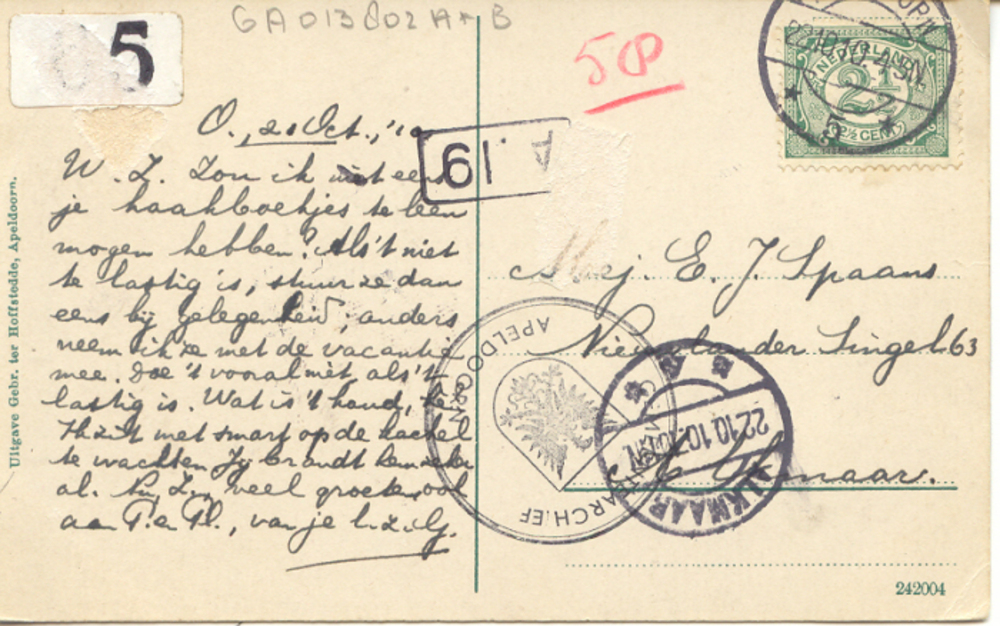 GA013802A+B
5
50
O., 21 Oct., '10
A. 19
W. Z. Zou ik niet eens
je haakboekjes te leen
mogen hebben? Als 't niet
te lastig is, stuur ze dan
eens bij gelegenheid, anders
neem ik ze met de vacantie
mee. Doe 't vooral niet als 't
lastig is. Wat is 't koud, hè
Ik zit met smart op de kachel
te wachten. Jij brandt hem zeker
al. Nu, Z., veel groeten, ook
aan T. en
van je l. z. G.
Mej. E. J. Spaans
Nieuwlander Singel 63
Alkmaar.
NEDERLAND
2½
2½ CENT
22.10.10 4-5N
5
GEMEENTEARCHIEF APELDOORN
ALKMAAR
22.10.10
Uitgave Gebr. ter Hoffstedde, Apeldoorn.
242004